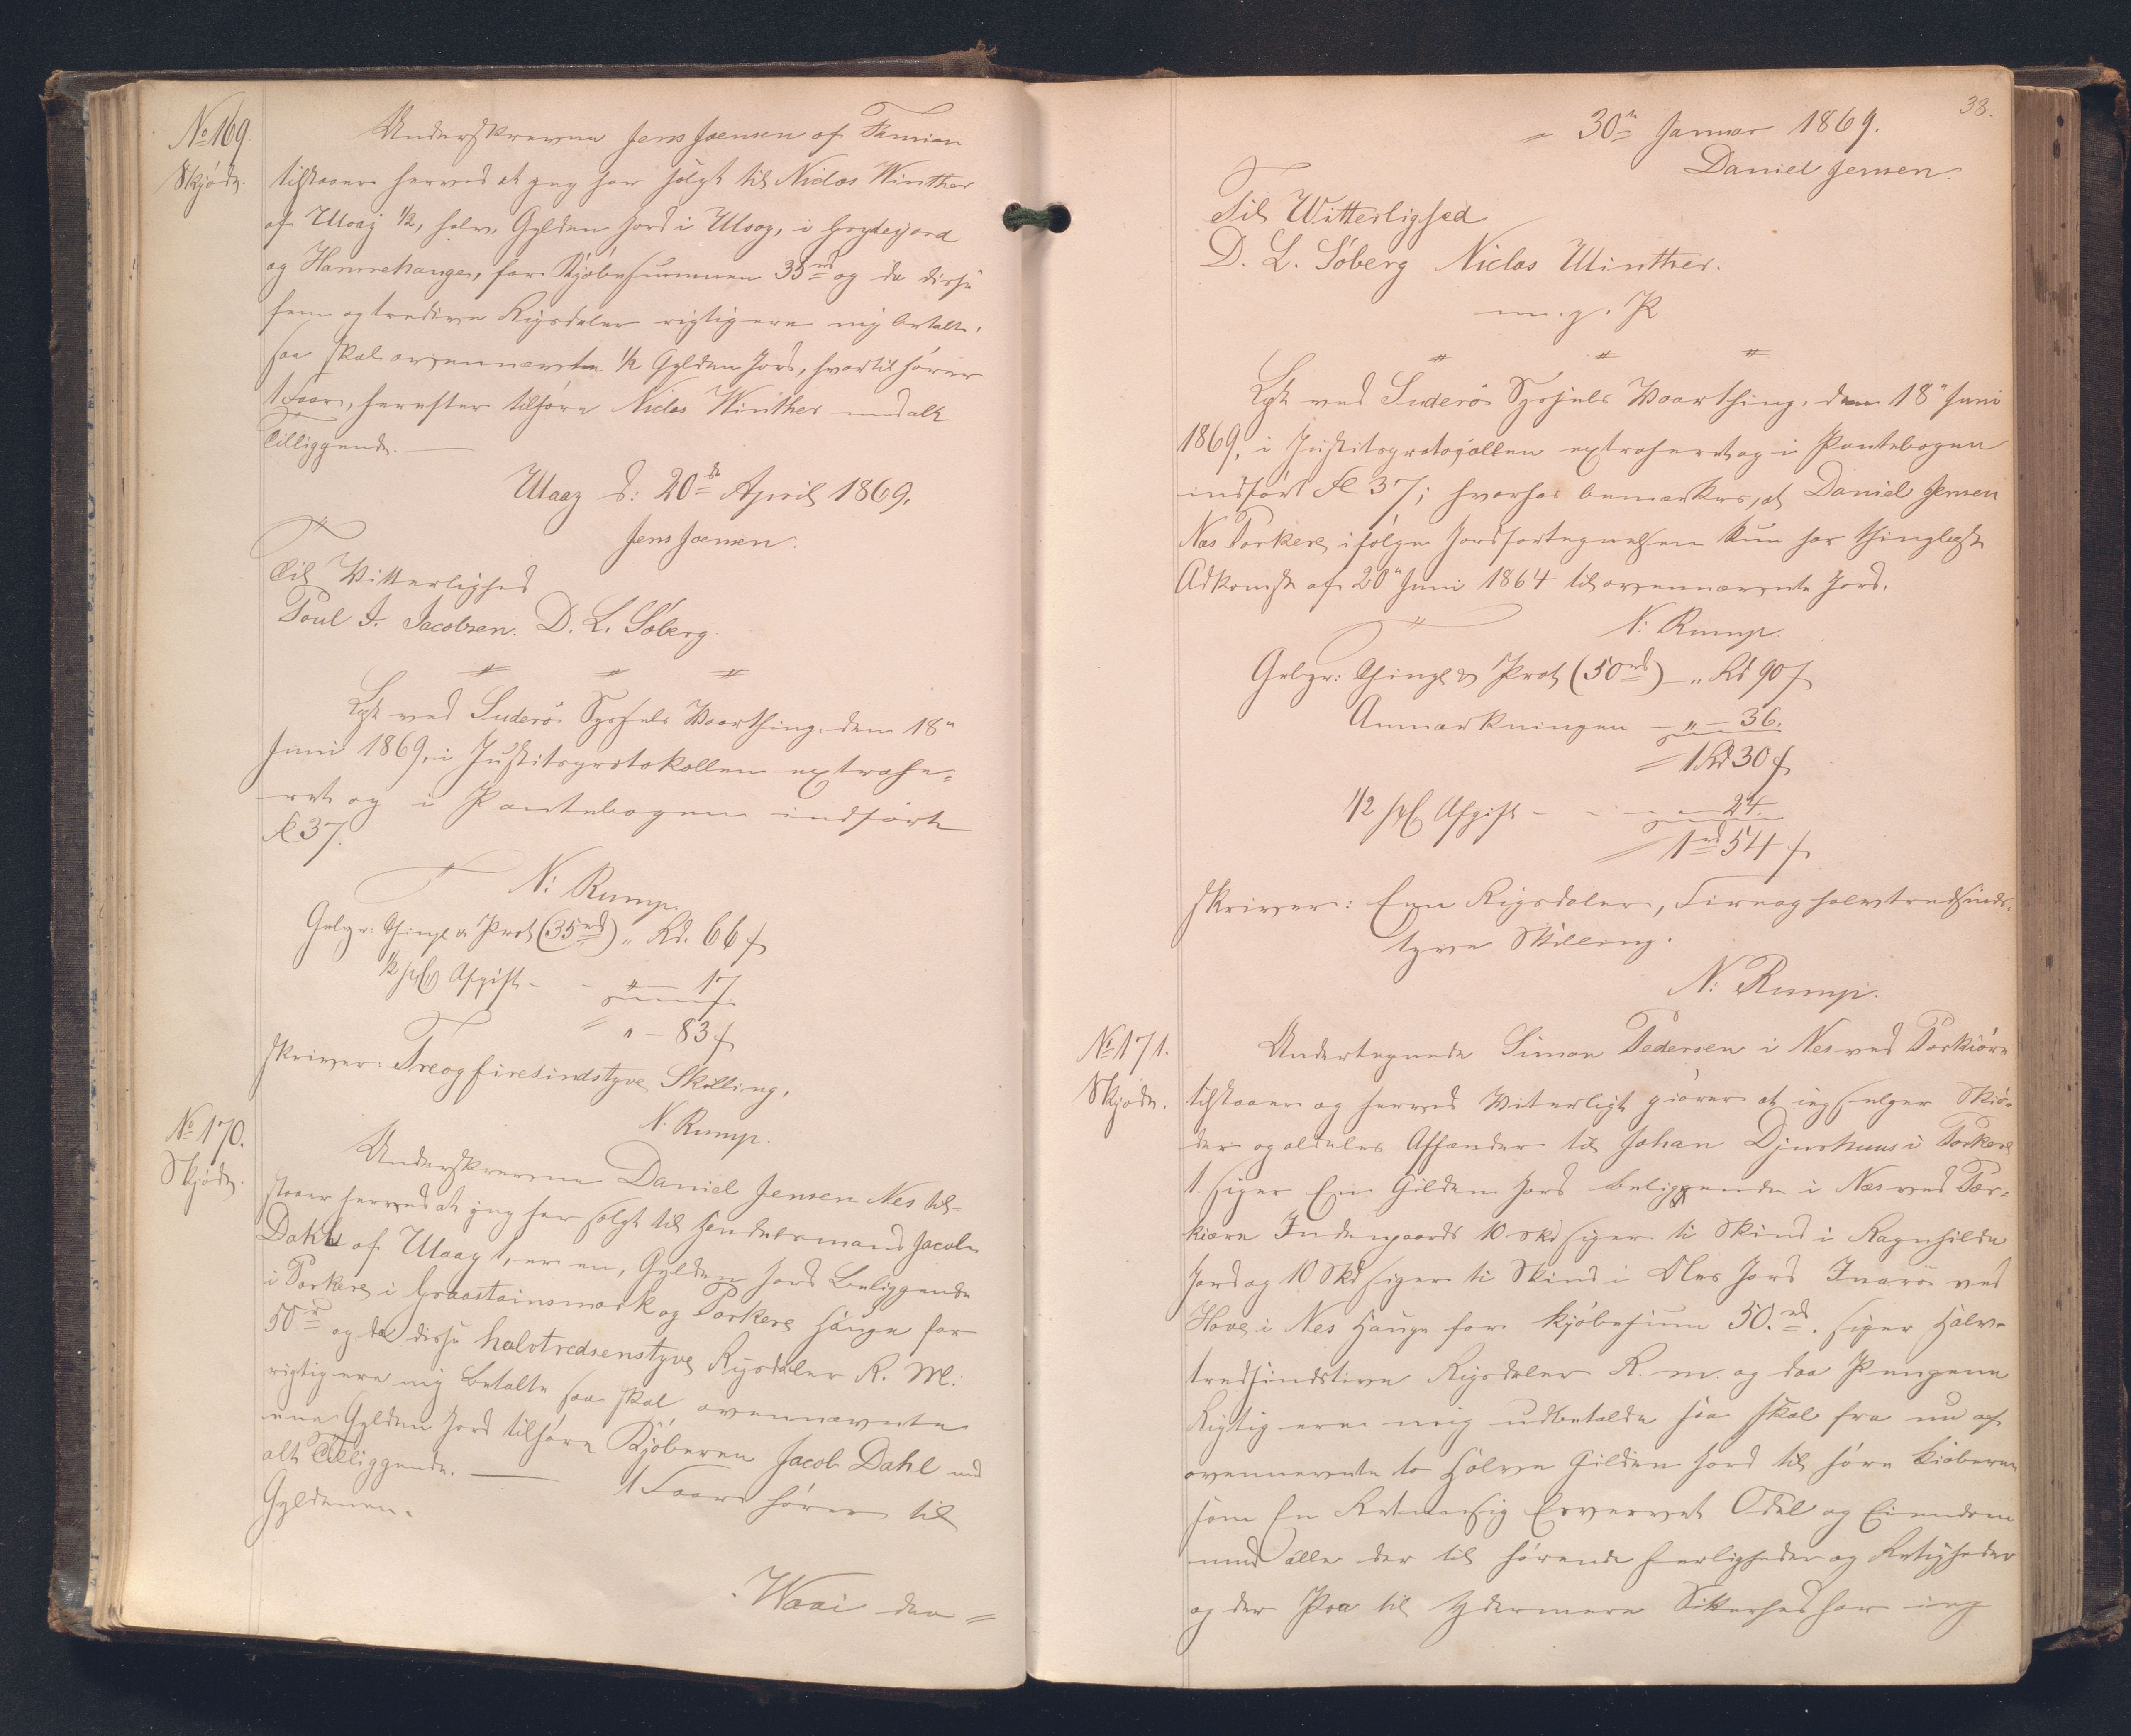 No 169
Skjøde.
Underskrevne Jens Joensen af Famien
tilstaaer herved at jeg har solgt til Niclas Winther
af Waag 1/2, halv, Gylden Jord i Waag, i
og Hamrehauge, for Kjøbesummen 35 rd og da disse
fem og tredive Rigsdaler rigtig ere mig betalte,
saa skal ovennævnte 1/2 Gylden Jord, hvortil hører
1 Faar, herefter tilhøre Niclas Winther med alt
Tilliggende.
Waag d: 20de April 1869.
Jens Joensen.
Til Vitterlighed
Poul J. Jacobsen. D. L. Söberg.
Læst ved Suderø Syssels Vaarthing, den 18"
Juni 1869, i Justitsprotokollen extrahe-
ret og i Pantebogen indført
fol 37.
N: Rump.
Gebyr: Thingl & Prot (35 rd) " Rd. 66 s
1/2 pC Afgift - - " — 17
" — 83 s
skriver: Treogfiresindstyve Skilling.
N. Rump.
No 170.
Skjøde.
Underskrevne Daniel Jensen Nes til-
staaer herved at jeg har solgt til Handelsmand Jacob
Dahl af Waag 1, er en, Gylden Jord beliggende
i Porkere i Graastainsmark og Porkere Hauge for
50 rd og da disse halvtredsenstyve Rigsdaler R. M.
rigtig ere mig betalte saa skal ovennævnte
ene Gylden Jord tilhøre Kjøberen Jacob Dahl med
alt Tilliggende. — 1 Faar hører til
Gyldenen.
Waai den =
38.
= 30te Januar 1869.
Daniel Jensen.
Til Witterlighed
D. L. Söberg Niclas Winther.
m. p. P.
Læst ved Suderø Syssels Vaarthing, den 18" Juni
1869, i Justitsprotocollen extraheret og i Pantebogen
indført fol 37; hvorhos bemærkes, at Daniel Jensen
Næs Porkere, ifølge Jordfortegnelsen kun har thinglæst
Adkomst af 20" Juni 1864 til ovennævnte Jord.
N: Rump.
Gebyr: Thingl & Prot (50 rd) — " Rd 90 s
Anmærkningen — " — 36.
1 Rd 30 s
1/2 pC Afgift - - - — 24.
1 rd 54 s
skriver: Een Rigsdaler, Fireoghalvtredsinds-
tyve Skilling.
N: Rump.
No 171.
Skjøde.
Undertegnede Simon Pedersen i Nes ved Porkiøre
tilstaaer og herved Witerligt giører at ieg selger Skiø-
der og aldeles Afhænder til Johan Djurhuus i Porkere
1. siger En Gilden Jord beliggende i Næs ved Por-
kiøre Indengaards 10 skd siger ti Skind i Ragnhilde
Jord og 10 Skd siger ti Skind i Oles Jord Inarø ved
Hove i Nes Hauge for kjøbesum 50. rd. siger Halv-
tredsindstive Rigsdaler R. m. og daa Pengene
Rigtig ere mig udbetalde saa skal fra nu af
ovennevnte to Halve Gilden Jord til høre kiøberen
som En Retmessig Erværvet Odel og Eiendom
med alle der til hørende Herligheder og Retigheder
og der Paa til ydermere Sikkerhed har ieg